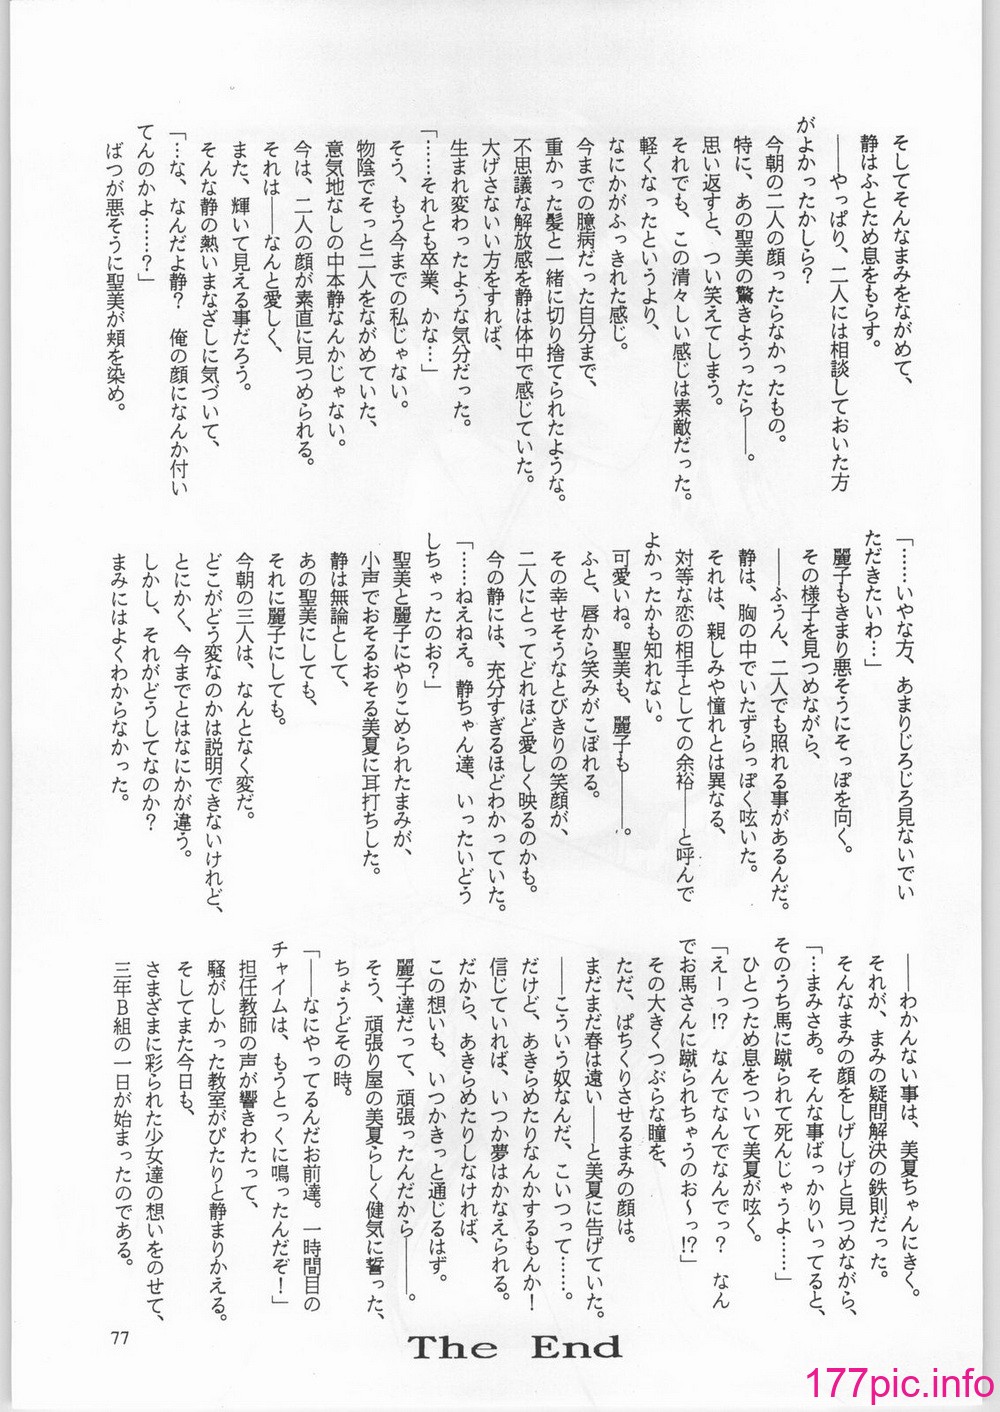 そしてそんなまみをながめて、
静はふとため息をもらす。
――やっぱり、二人には相談しておいた方
がよかったかしら?
今朝の二人の顔ったらなかったもの。
特に、あの聖美の驚きようったら――。
思い返すと、つい笑えてしまう。
それでも、この清々しい感じは素敵だった。
軽くなったというより、
なにかがふっきれた感じ。
今までの臆病だった自分まで、
重かった髪と一緒に切り捨てられたような。
不思議な解放感を静は体中で感じていた。
大げさないい方をすれば、
生まれ変わったような気分だった。
「……それとも卒業、かな…」
そう、もう今までの私じゃない。
物陰でそっと二人をながめていた、
意気地なしの中本静なんかじゃない。
今は、二人の顔が素直に見つめられる。
それは――なんと愛しく、
また、輝いて見える事だろう。
そんな静の熱いまなざしに気づいて、
「…な、なんだよ静? 俺の顔になんか付い
てんのかよ……?」
ばつが悪そうに聖美が頬を染め。
「……いやな方、あまりじろじろ見ないでい
ただきたいわ…」
麗子もきまり悪そうにそっぽを向く。
その様子を見つめながら、
――ふうん、二人でも照れる事があるんだ。
静は、胸の中でいたずらっぽく呟いた。
それは、親しみや憧れとは異なる、
対等な恋の相手としての余裕――と呼んで
よかったかも知れない。
可愛いね。聖美も、麗子も――。
ふと、唇から笑みがこぼれる。
その幸せそうなとびきりの笑顔が、
二人にとってどれほど愛しく映るのかも。
今の静には、充分すぎるほどわかっていた。
「……ねえねえ。静ちゃん達、いったいどう
しちゃったのお?」
聖美と麗子にやりこめられたまみが、
小声でおそるおそる美夏に耳打ちした。
静は無論として、
あの聖美にしても、
それに麗子にしても。
今朝の三人は、なんとなく変だ。
どこがどう変なのかは説明できないけれど、
とにかく、今までとはなにかが違う。
しかし、それがどうしてなのか?
まみにはよくわからなかった。
――わかんない事は、美夏ちゃんにきく。
それが、まみの疑問解決の鉄則だった。
そんなまみの顔をしげしげと見つめながら、
「…まみさあ。そんな事ばっかりいってると、
そのうち馬に蹴られて死んじゃうよ……」
ひとつため息をついて美夏が呟く。
「えーっ!? なんでなんでなんでっ? なん
でお馬さんに蹴られちゃうのお〜っ!?」
その大きくつぶらな瞳を、
ただ、ぱちくりさせるまみの顔は。
まだまだ春は遠い――と美夏に告げていた。
――こういう奴なんだ、こいつって……。
だけど、あきらめたりなんかするもんか!
信じていれば、いつか夢はかなえられる。
だから、あきらめたりしなければ、
この想いも、いつかきっと通じるはず。
麗子達だって、頑張ったんだから――。
そう、頑張り屋の美夏らしく健気に誓った、
ちょうどその時。
「――なにやってるんだお前達。一時間目の
チャイムは、もうとっくに鳴ったんだぞ!」
担任教師の声が響きわたって、
騒がしかった教室がぴたりと静まりかえる。
そしてまた今日も、
さまざまに彩られた少女達の想いをのせて、
三年B組の一日が始まったのである。
The End
77
177pic.info